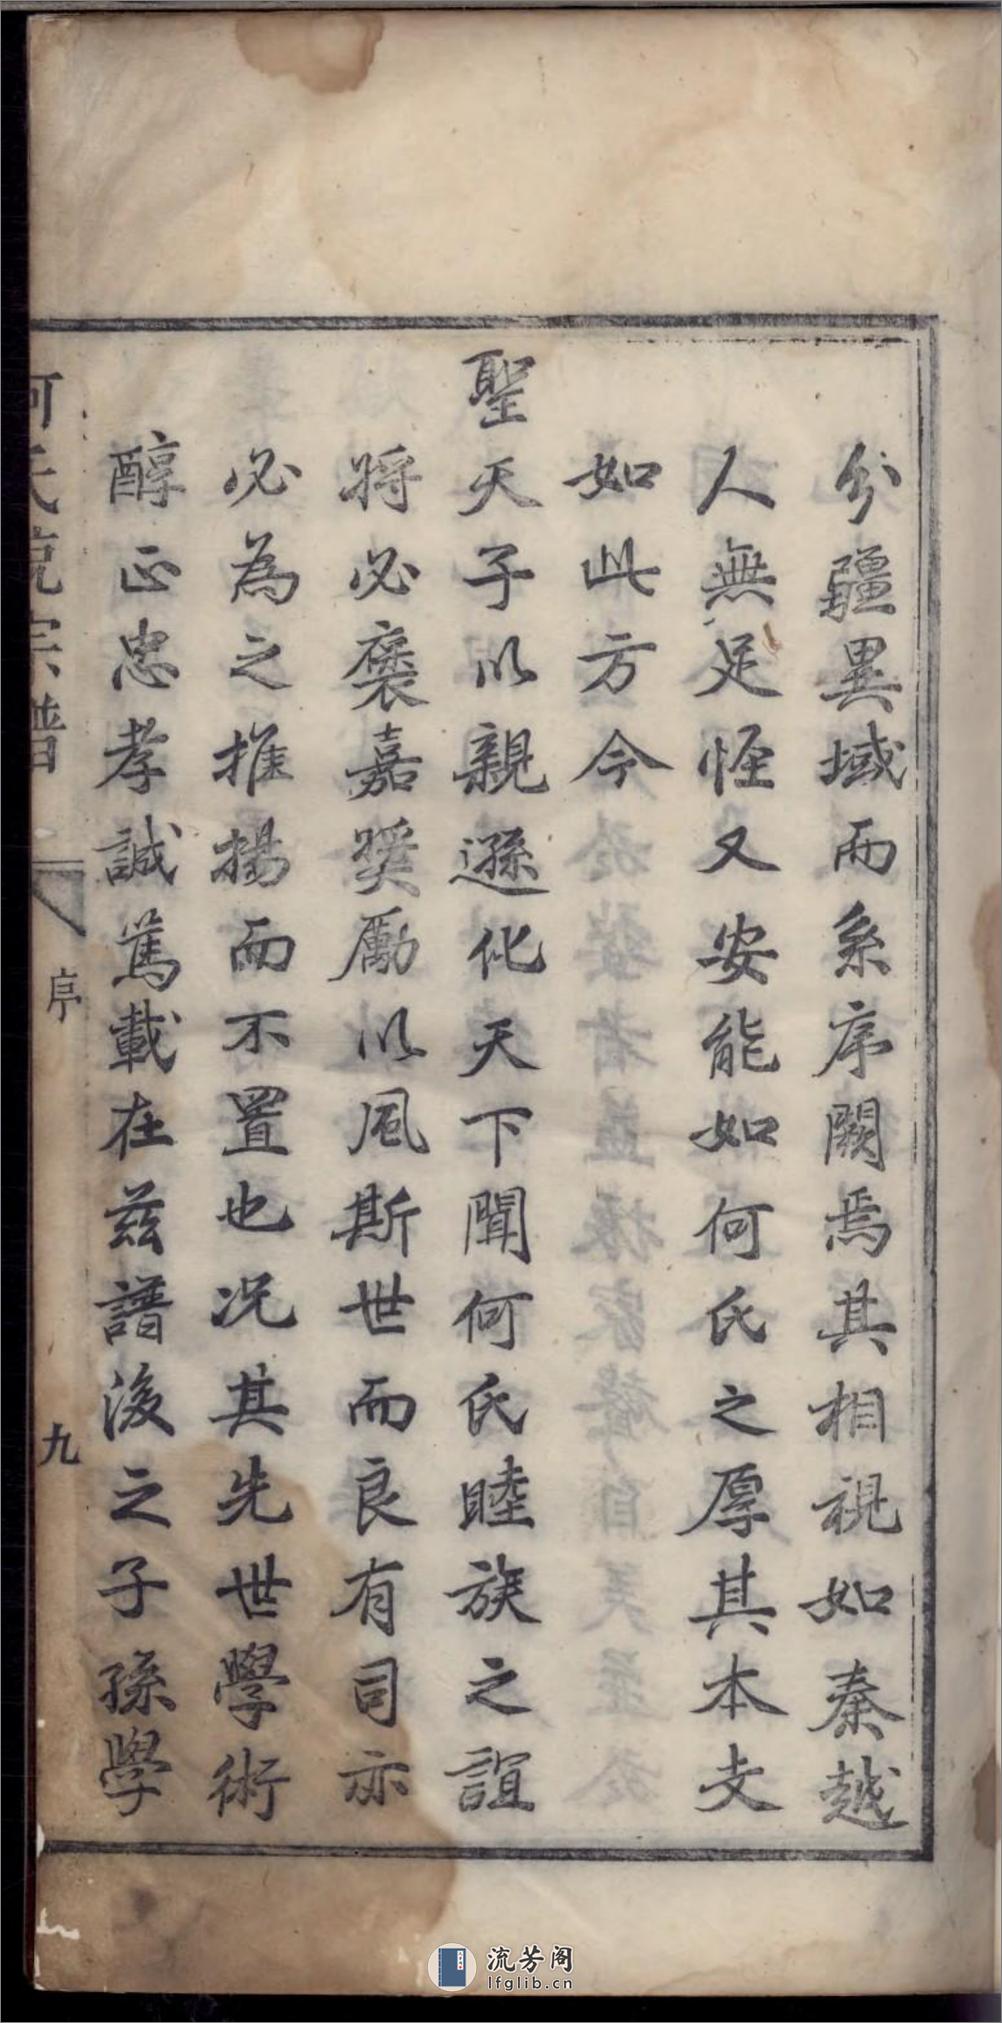 分疆異域而系序闕焉其相視如秦越
人無足怪又安能如何氏之厚其本支
如此方今
聖天子以親遜化天下聞何氏睦族之誼
將必褒嘉獎勵以風斯世而良有司亦
必為之推揚而不置也况其先世學術
醇正忠孝誠篤載在兹譜後之子孫學
何氏 宗譜
序
九
流芳阁
lfglib.cn